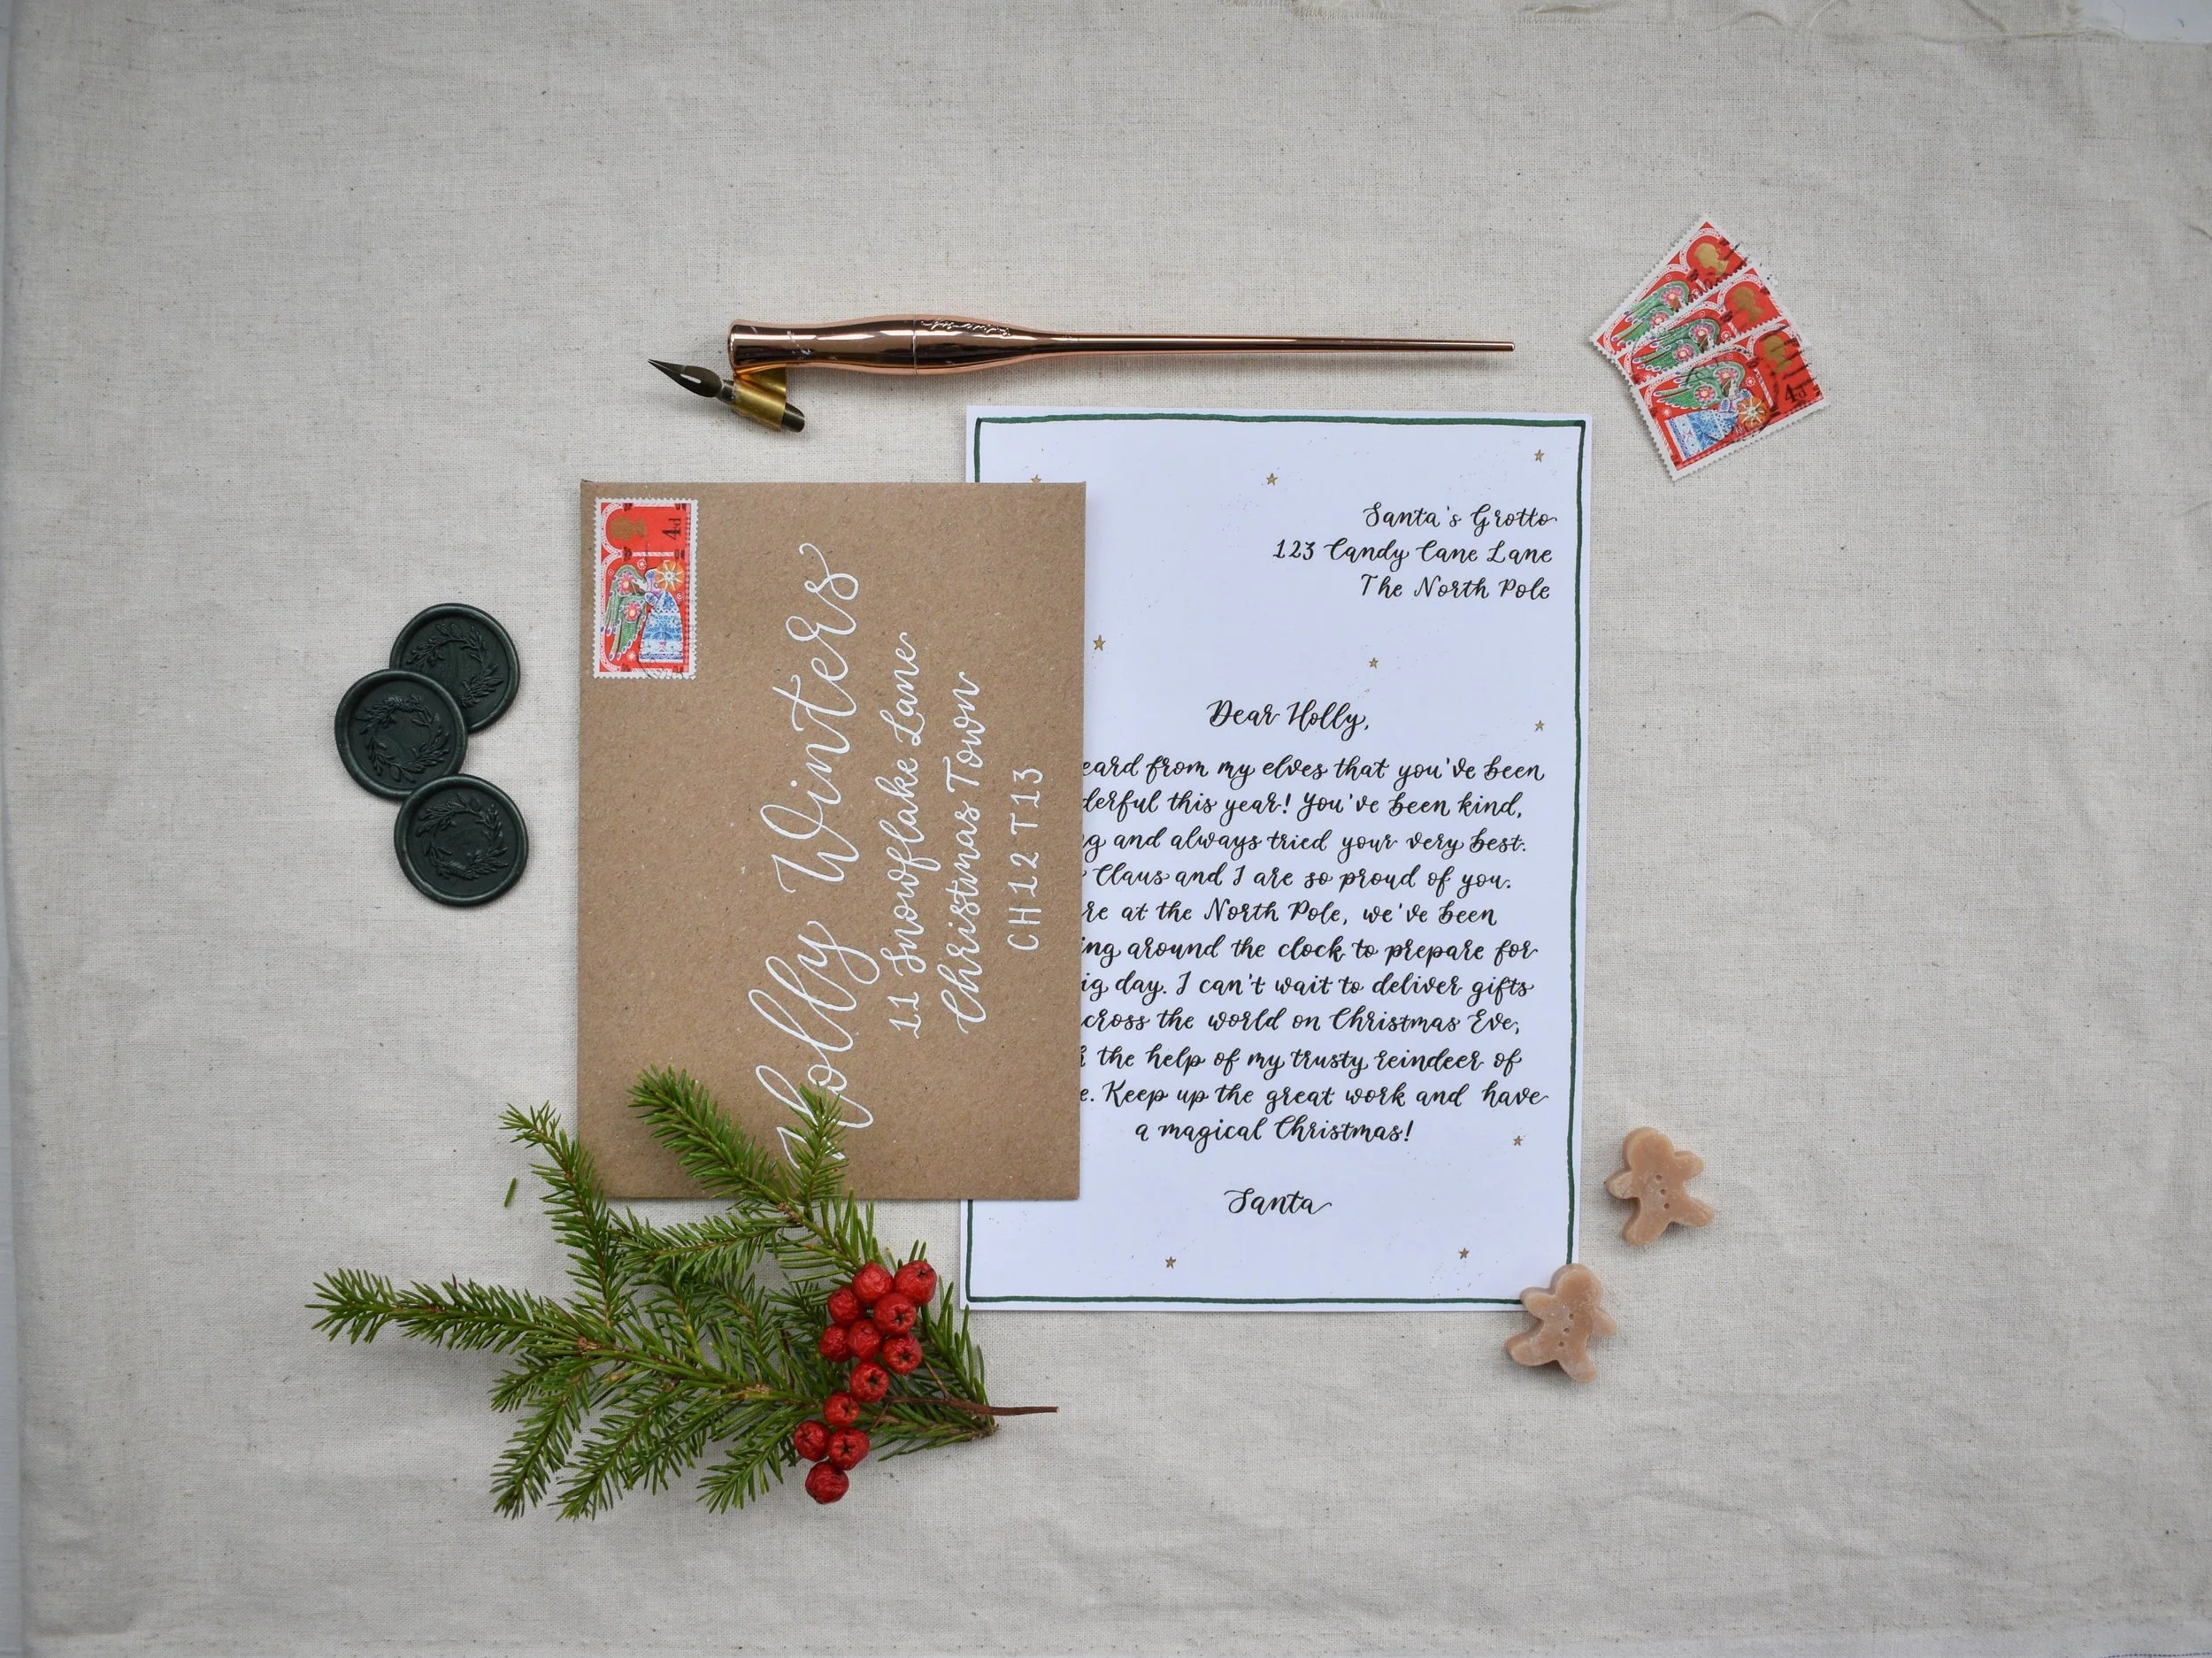 4d
Holly Winters
11 Snowflake Lane
Christmas Town
CH12 T13
Santa's Grotto
123 Candy Cane Lane
The North Pole
Dear Holly,
from my elves that you've been
this year! You've been kind,
and always tried your very best.
Claus and I are so proud of you.
at the North Pole, we've been
around the clock to prepare for
day. I can't wait to deliver gifts
the world on Christmas Eve,
the help of my trusty reindeer of
Keep up the great work and have
a magical Christmas!
Santa
4d